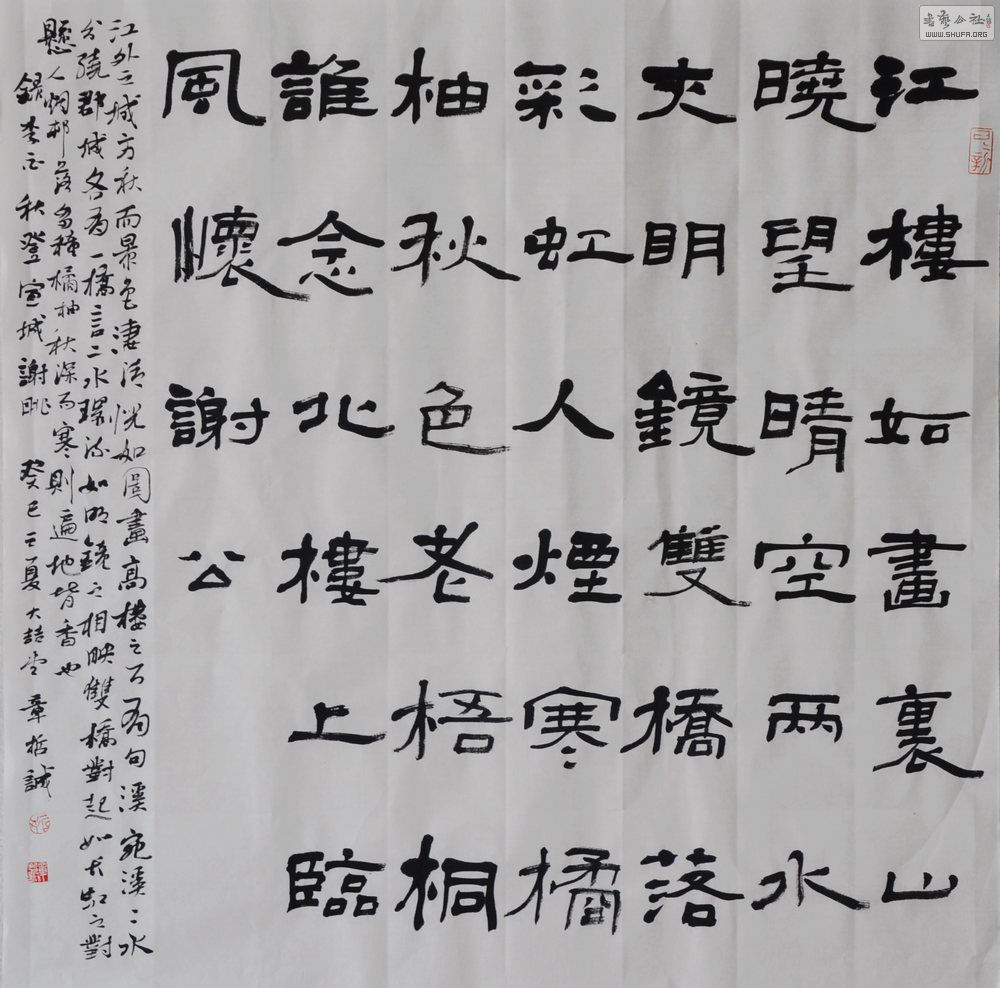 江樓如畫裏山
曉望晴空兩水
夾明鏡雙橋落
彩虹人煙寒橘
柚秋色老梧桐
誰念北樓上臨
風懷謝公
江外之城方秋而景色淒清恍如圖畫高樓之下有句溪宛溪二水
分繞郡城各有一橋言二水環流如明鏡之相映雙橋對起如長虹之對
懸人煙邨落多種橘柚秋深而寒則遍地皆香也
錄李白秋登宣城謝朓 癸巳之夏大喆堂章哲誠
書藝公社
WWW.SHUFA.ORG